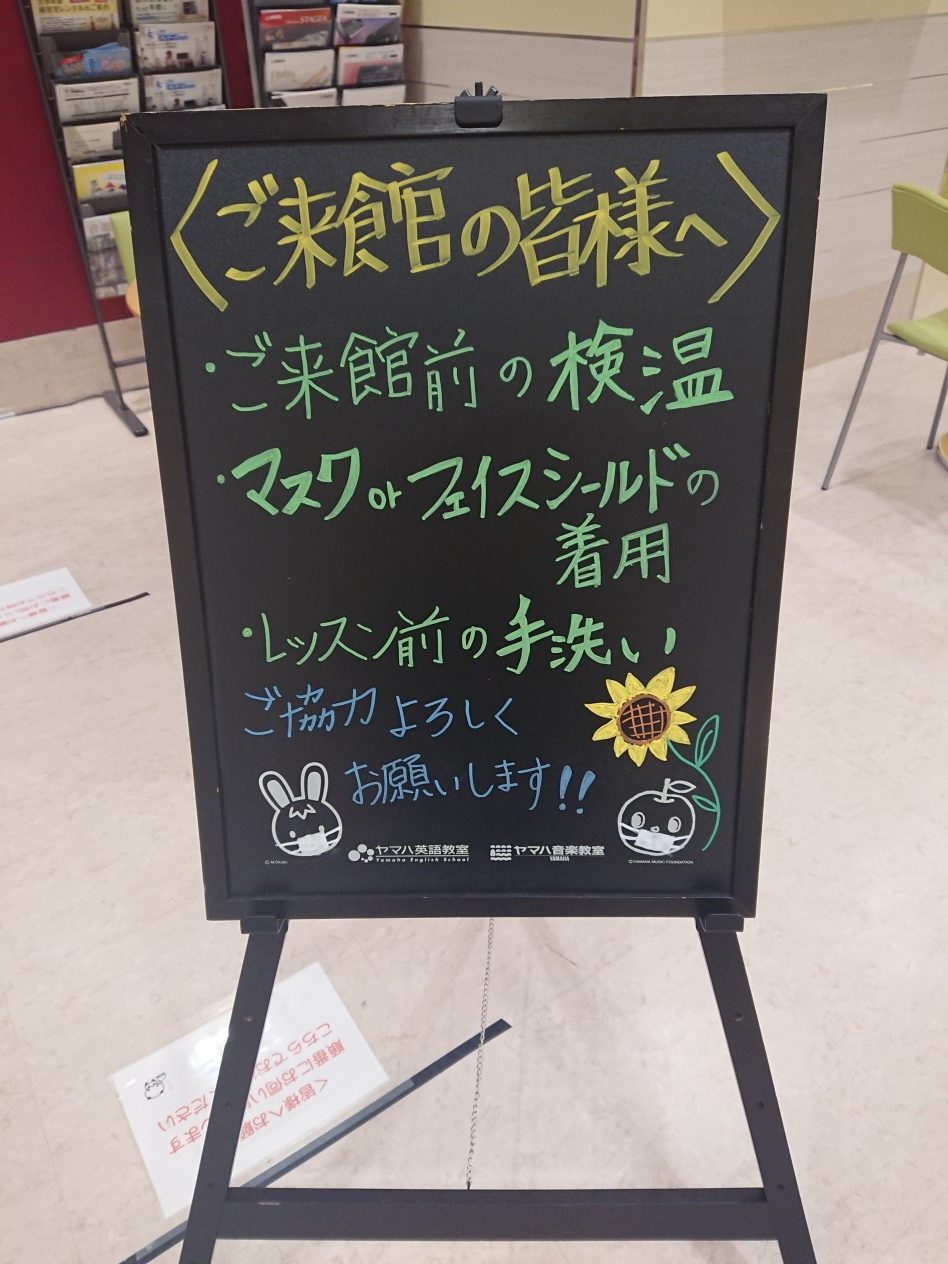 〈ご来館の皆様へ〉
・ご来館前の検温
・マスク or フェイスシールドの
着用
・レッスン前の手洗い
ご協力よろしく
お願いします!!
ヤマハ英語教室
Yamaha English School
ヤマハ音楽教室
YAMAHA
©M.Okubo
©YAMAHA MUSIC FOUNDATION